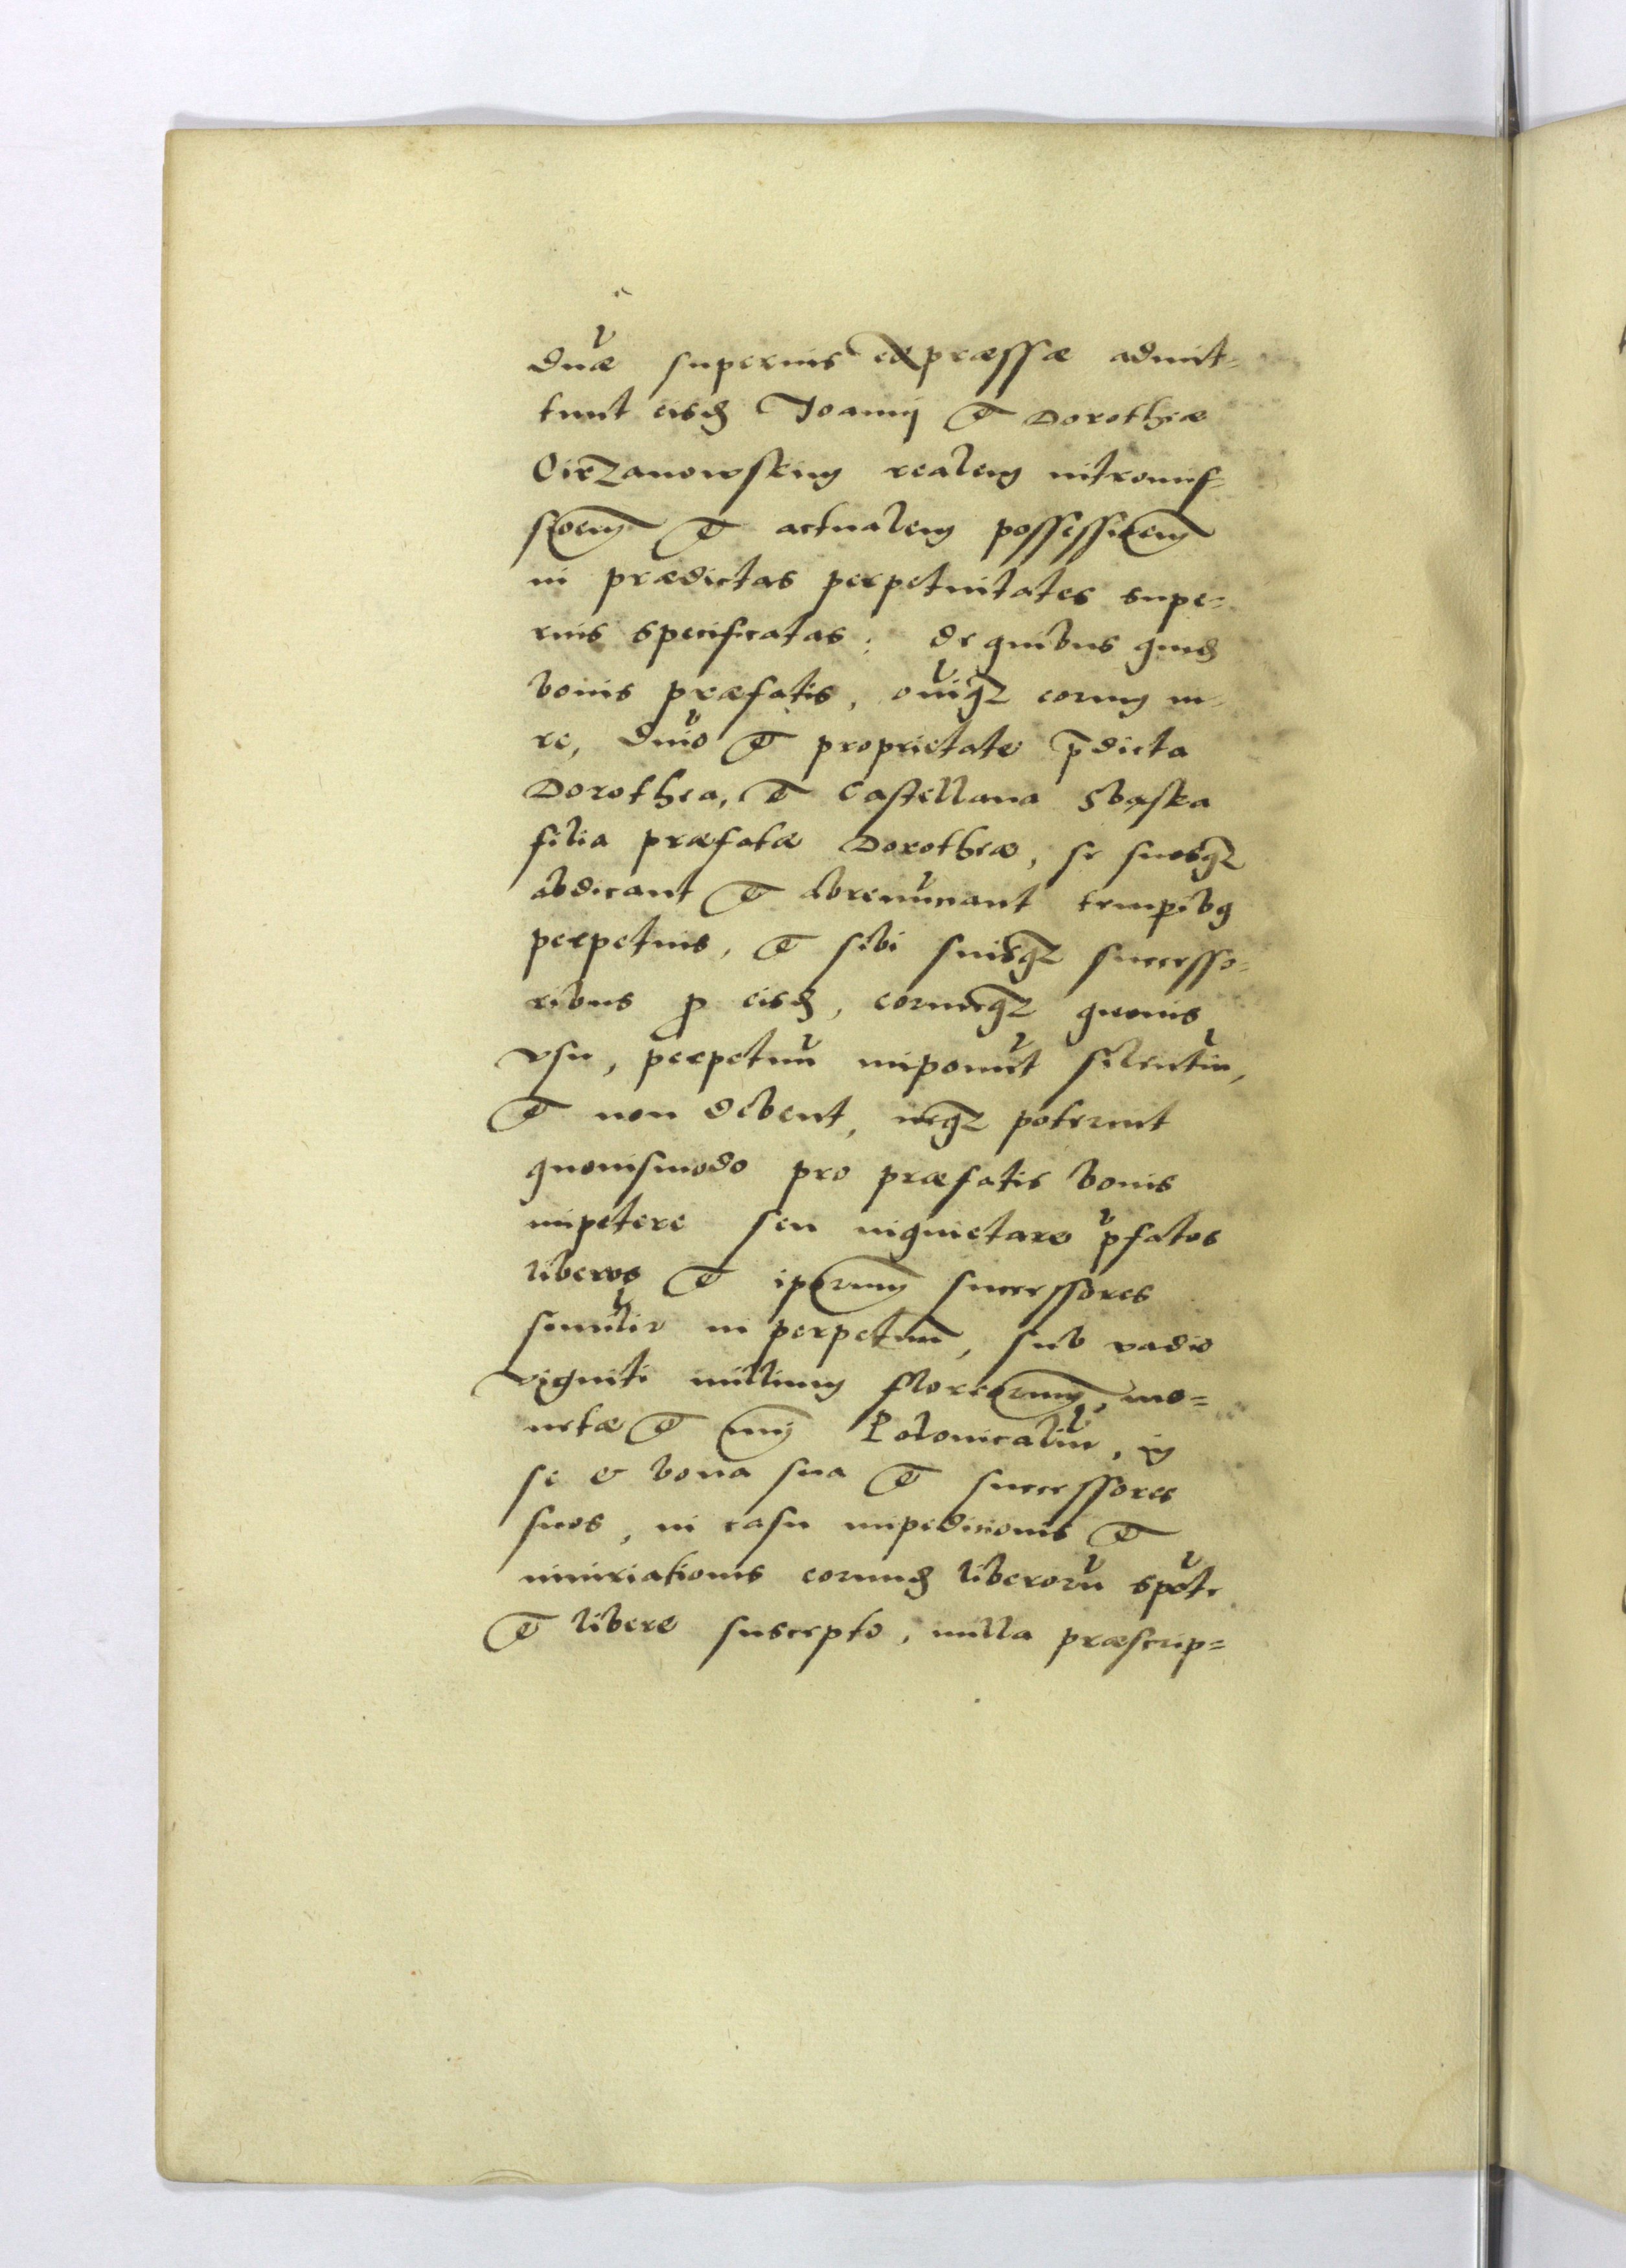 dnae superius expraessae admit-
tunt eisd Joannj et Dorotheae
Cirzanowskim realem intromis-
sioem et actualem possessioem
in praedictas perpetuitates supe-
rius specificatas: de quibus quid
bonis praefatis, oniq eorum iu-
re, dnio et proprietate pdicta
Dorothea, et Castellana Sbaska
filia praefatae Dorotheae, se suosq
abdicant et abrenuncant tempibq
perpetuis, et sibi suisq successo-
ribus p eisd, eorumq quouis
vsu, perpetuu imponut silentiu,
et non debent, neq poterunt
quouismodo pro praefatis bonis
impetere seu inquietare pfatos
liberos et iporum successores
similir in perpetuu, sub vadio
viginti millium florenorum, mo=
netae et nuj Polonicaliu, in
se & bona sua et successores
suos, in casu impedicionis et
iniuriationis eorumd liberoru spote
et libere suscepto, nulla praescrip=